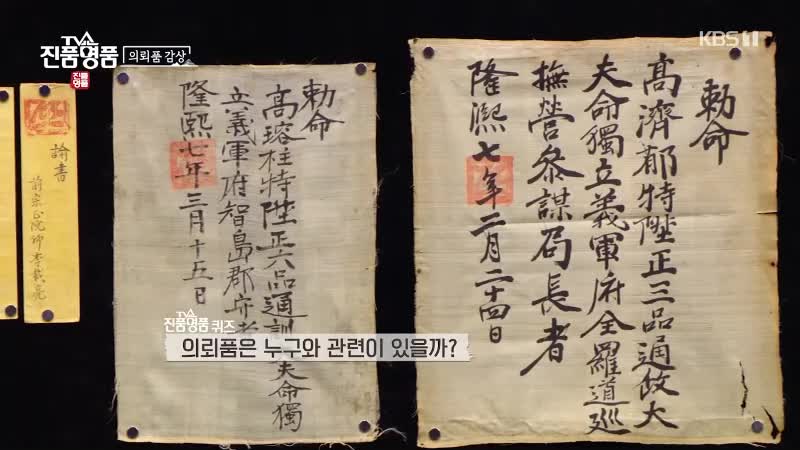 TV쇼
진품명품
의뢰품 감상
진품
명품
KBS 1
勅命
高濟 特陞正三品通政大
夫命獨立義軍府全羅道巡
撫營叅謀局長者
隆熙七年二月二十四日
勅命
高瑢柱特陞正六品通訓 夫命獨
立義軍府智島郡
隆熙七年三月十五日
諭書
TV쇼
진품명품 퀴즈
의뢰품은 누구와 관련이 있을까?